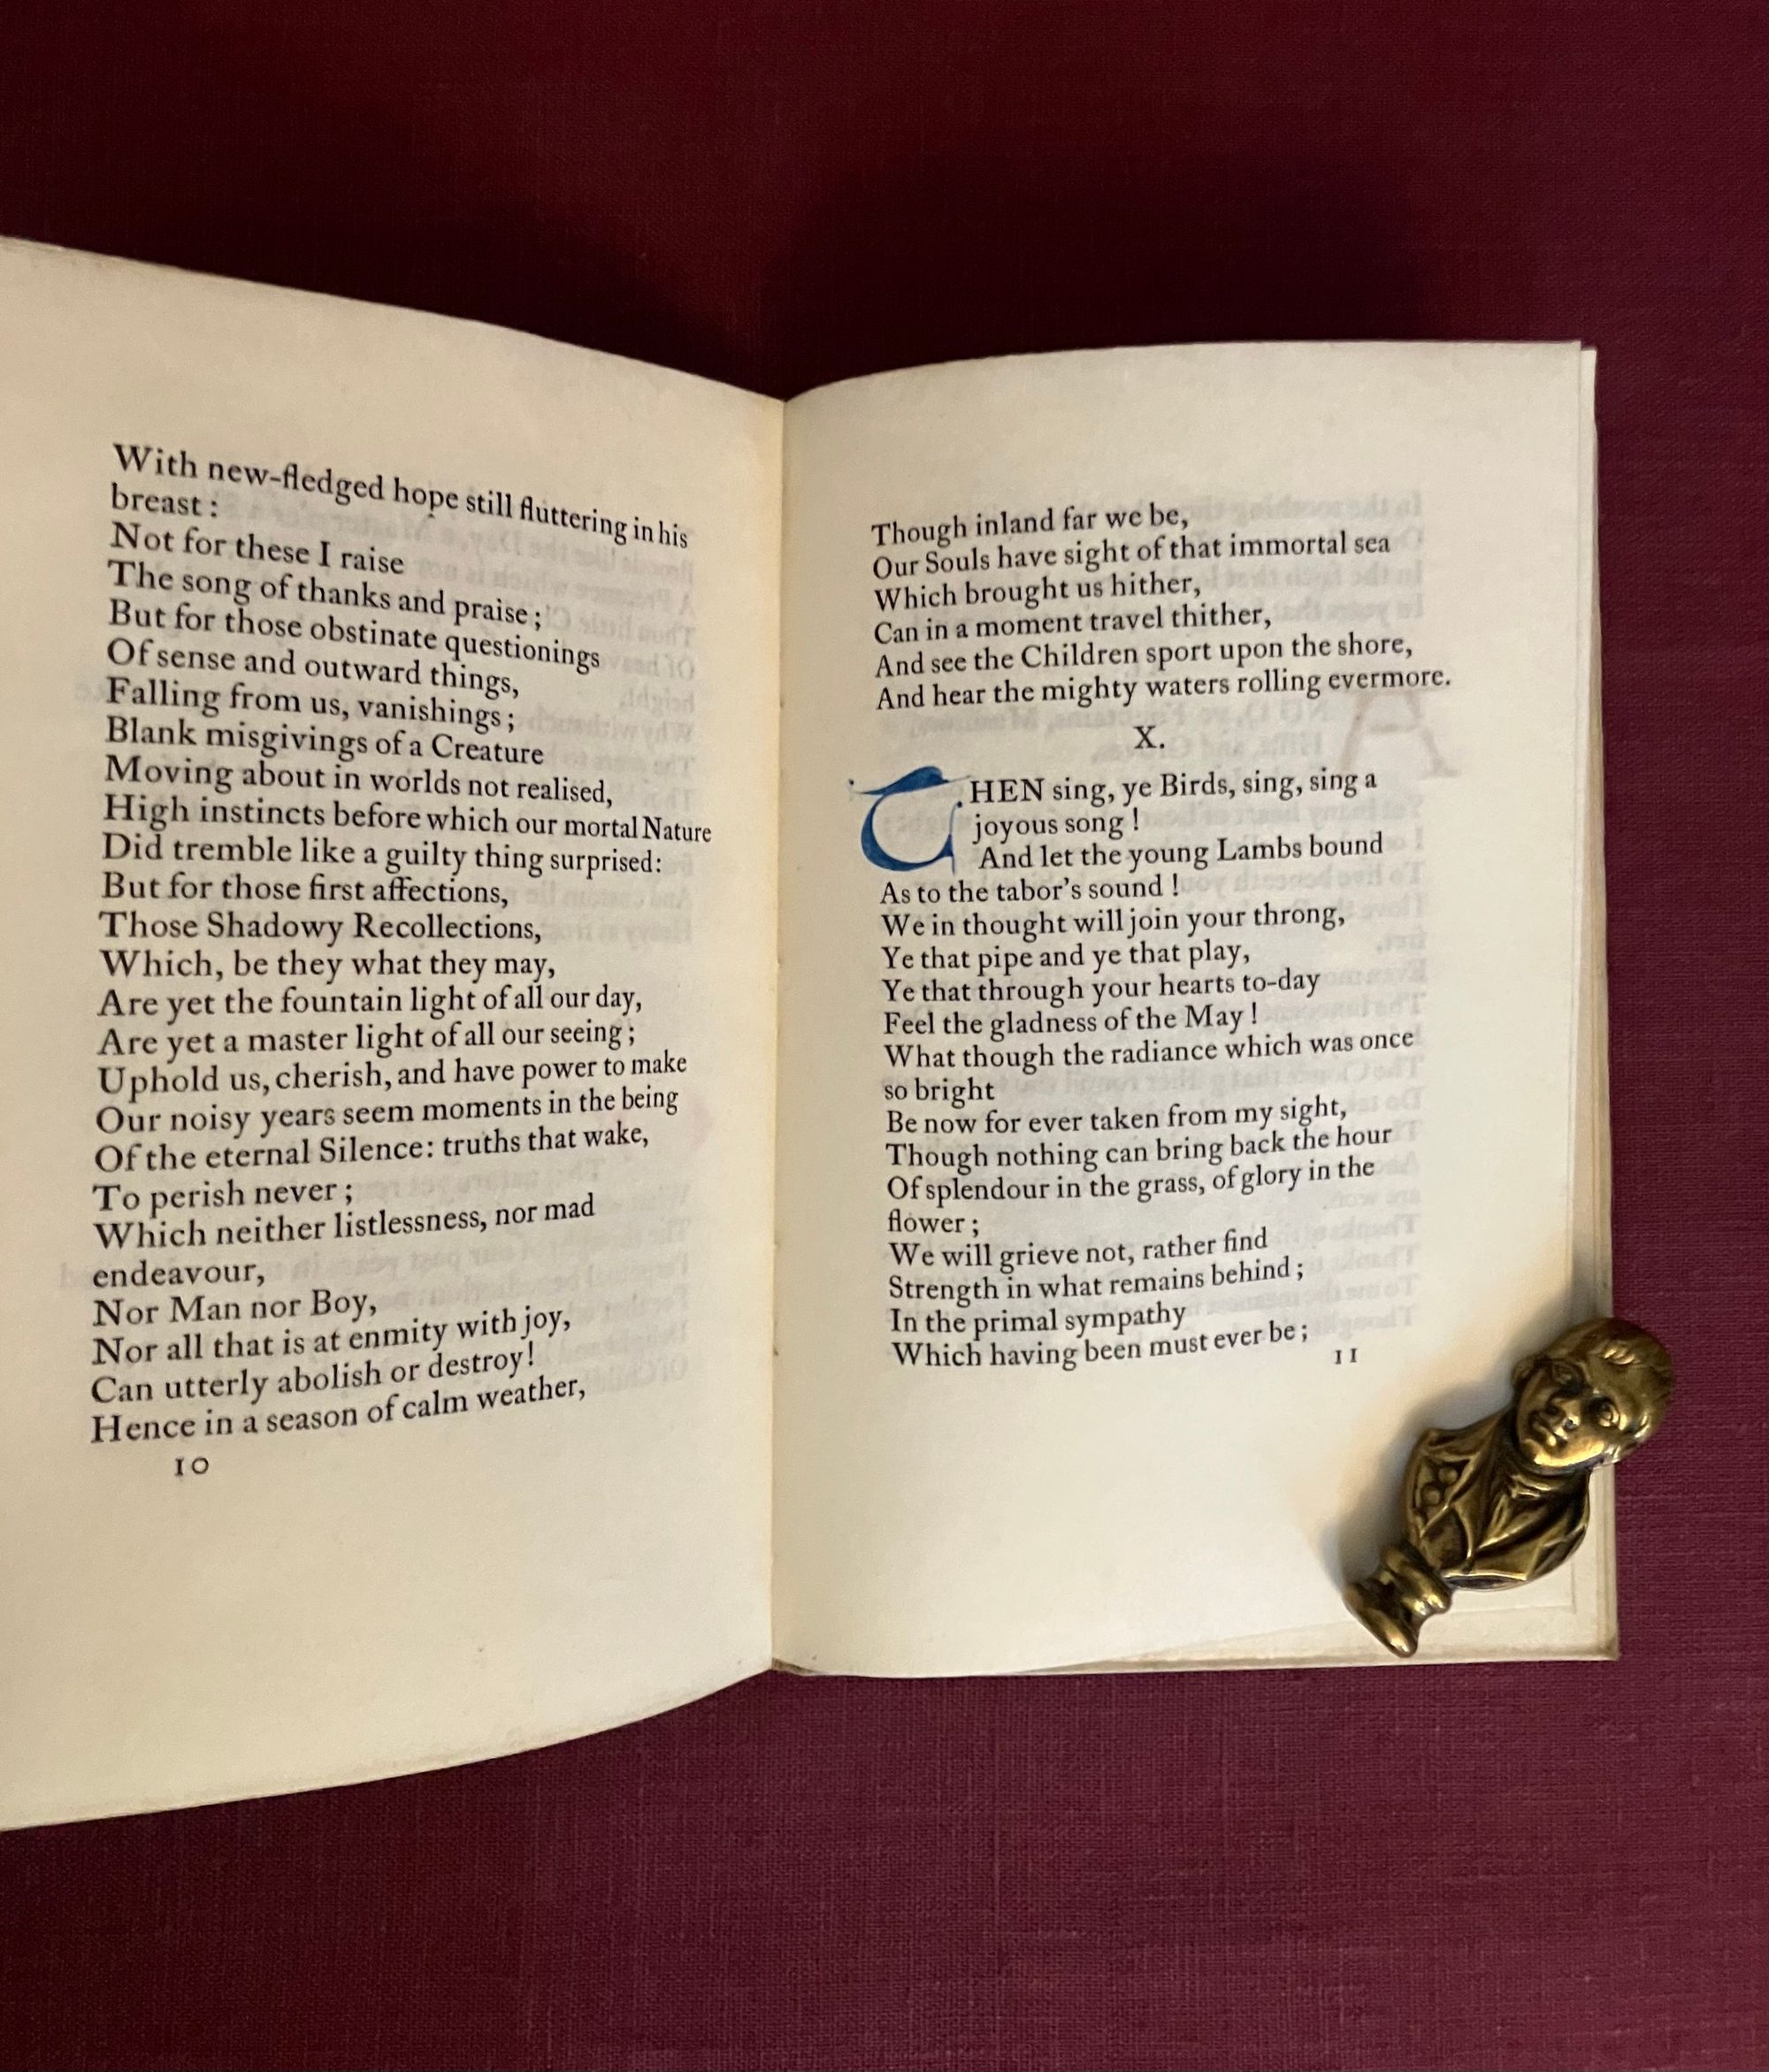 With new-fledged hope still fluttering in his
breast :
Not for these I raise
The song of thanks and praise ;
But for those obstinate questionings
Of sense and outward things,
Falling from us, vanishings ;
Blank misgivings of a Creature
Moving about in worlds not realised,
High instincts before which our mortal Nature
Did tremble like a guilty thing surprised:
But for those first affections,
Those Shadowy Recollections,
Which, be they what they may,
Are yet the fountain light of all our day,
Are yet a master light of all our seeing ;
Uphold us, cherish, and have power to make
Our noisy years seem moments in the being
Of the eternal Silence: truths that wake,
To perish never ;
Which neither listlessness, nor mad
endeavour,
Nor Man nor Boy,
Nor all that is at enmity with joy,
Can utterly abolish or destroy!
Hence in a season of calm weather,
10
Though inland far we be,
Our Souls have sight of that immortal sea
Which brought us hither,
Can in a moment travel thither,
And see the Children sport upon the shore,
And hear the mighty waters rolling evermore.
X.
THEN sing, ye Birds, sing, sing a
joyous song !
And let the young Lambs bound
As to the tabor's sound !
We in thought will join your throng,
Ye that pipe and ye that play,
Ye that through your hearts to-day
Feel the gladness of the May !
What though the radiance which was once
so bright
Be now for ever taken from my sight,
Though nothing can bring back the hour
Of splendour in the grass, of glory in the
flower ;
We will grieve not, rather find
Strength in what remains behind ;
In the primal sympathy
Which having been must ever be ;
11